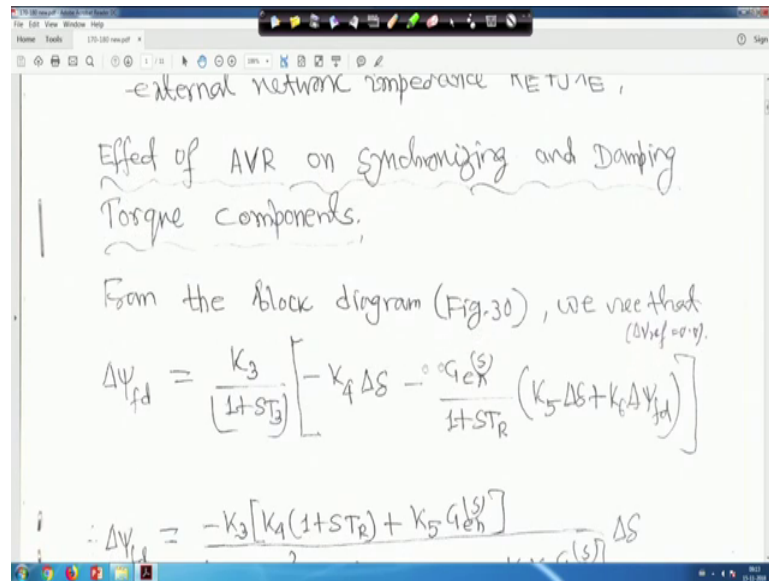 170-180 new.pdf - Adobe Acrobat Reader DC
File Edit View Window Help
Home Tools 170-180 new.pdf × Sign
1 / 11
external network impedance RE+JXE.
Effect of AVR on Synchronizing and Damping
Torque Components.
From the Block diagram (Fig.30), we see that
(ΔVref = 0.0).
Δψfd = K3/(1+ST3) [-K4 Δδ - Gex(S)/(1+STR) (K5 Δδ + K6 Δψfd)]
∴ Δψfd = -K3[K4(1+STR) + K5 Gex(S)] Δδ